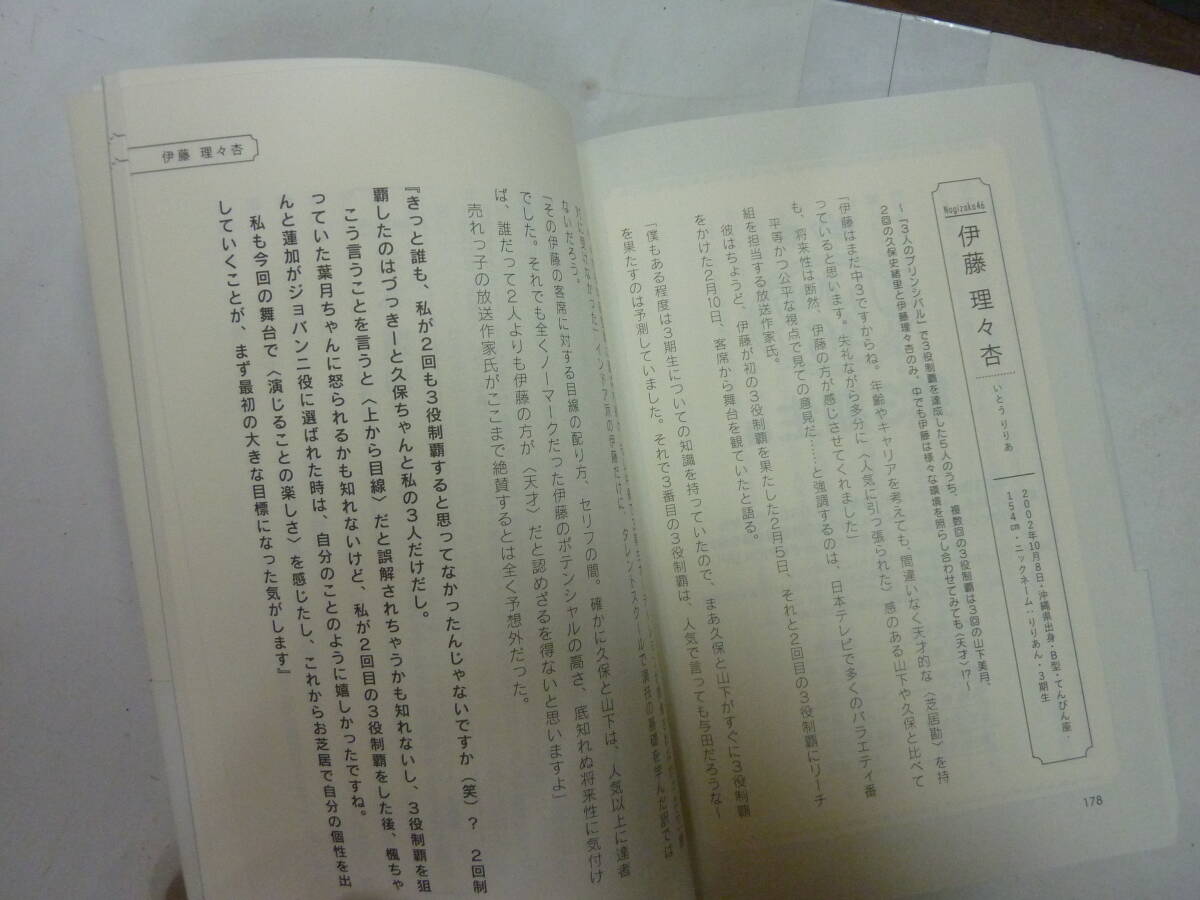 Nogizaka46
伊藤 理々杏
いとうりりあ
2002年10月8日・沖縄県出身・B型・てんびん座・
154㎝・ニックネーム：りりあん・3期生
〜『3人のプリンシパル』で3役制覇を達成した5人のうち、複数回の3役制覇は3回の山下美月、
2回の久保史緒里と伊藤理々杏のみ。中でも伊藤は様々な環境を照らし合わせてみても〈天才〉!?〜
「伊藤はまだ中3ですからね。年齢やキャリアを考えても、間違いなく天才的な〈芝居勘〉を持
っていると思います。失礼ながら多分に〈人気に引っ張られた〉感のある山下や久保と比べて
も、将来性は断然、伊藤の方が感じさせてくれました」
平等かつ公平な視点で見ての意見だ……と強調するのは、日本テレビで多くのバラエティ番
組を担当する放送作家氏。
彼はちょうど、伊藤が初の3役制覇を果たした2月5日、それと2回目の3役制覇にリーチ
をかけた2月10日、客席から舞台を観ていたと語る。
「僕もある程度は3期生についての知識を持っていたので、まあ久保と山下がすぐに3役制覇
を果たすのは予測していました。それで3番目の3役制覇は、人気で言っても与田だろうな〜
178
伊藤 理々杏
伊藤だけに、タレントスクールで演技の基礎を学んだ訳では
ないだろう。
「その伊藤の客席に対する目線の配り方、セリフの間。確かに久保と山下は、人気以上に達者
でした。それでも全くノーマークだった伊藤のポテンシャルの高さ、底知れぬ将来性に気付け
ば、誰だって2人よりも伊藤の方が〈天才〉だと認めざるを得ないと思いますよ」
売れっ子の放送作家氏がここまで絶賛するとは全く予想外だった。
『きっと誰も、私が2回も3役制覇すると思ってなかったんじゃないですか（笑）？　2回制
覇したのはづっきーと久保ちゃんと私の3人だけだし。
こう言うことを言うと〈上から目線〉だと誤解されちゃうかも知れないし、3役制覇を狙
っていた葉月ちゃんに怒られるかも知れないけど、私が2回目の3役制覇をした後、楓ちゃ
んと蓮加がジョバンニ役に選ばれた時は、自分のことのように嬉しかったですね。
私も今回の舞台で〈演じることの楽しさ〉を感じたし、これからお芝居で自分の個性を出
していくことが、まず最初の大きな目標になった気がします』